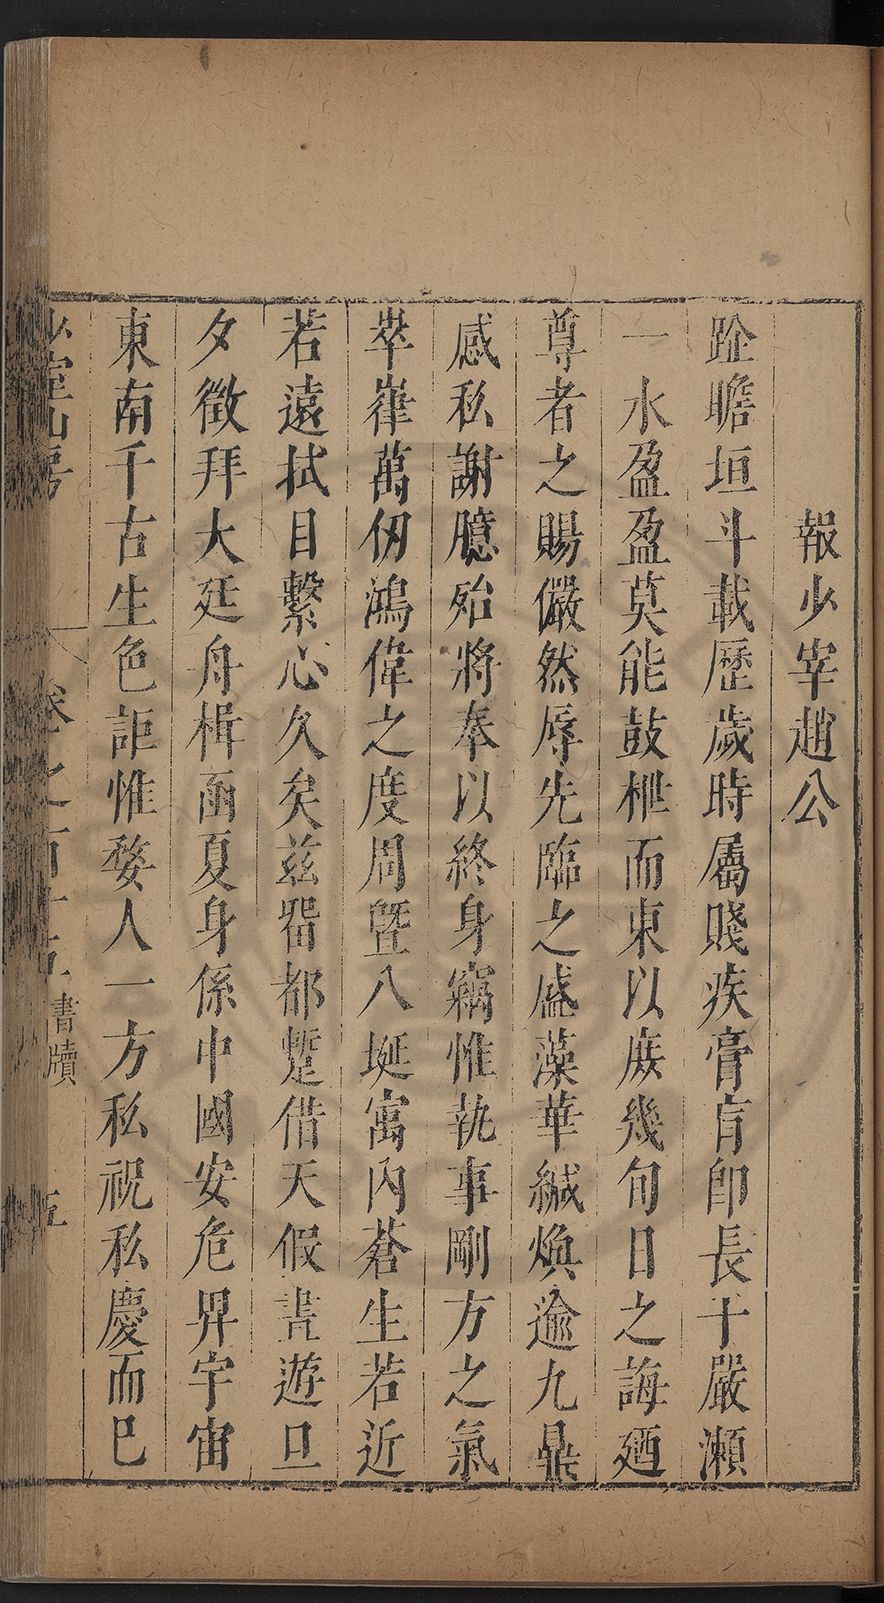 報少宰趙公
趾瞻垣斗載歷歲時屬賤疾膏肓卽長干嚴瀨
一水盈盈莫能鼓枻而東以庶幾旬日之誨廼
尊者之賜儼然辱先臨之盛藻華緘煥逾九鼎
感私謝臆殆將奉以終身竊惟執事剛方之氣
崒嵂萬仞鴻偉之度周曁八埏寓內蒼生若近
若遠拭目繫心久矣兹畱都蹔借天假晝遊旦
夕徵拜大廷舟楫函夏身係中國安危畀宇宙
東南千古生色詎惟婺人一方私祝私慶而已
少室山房 卷之百十五 書牘 五